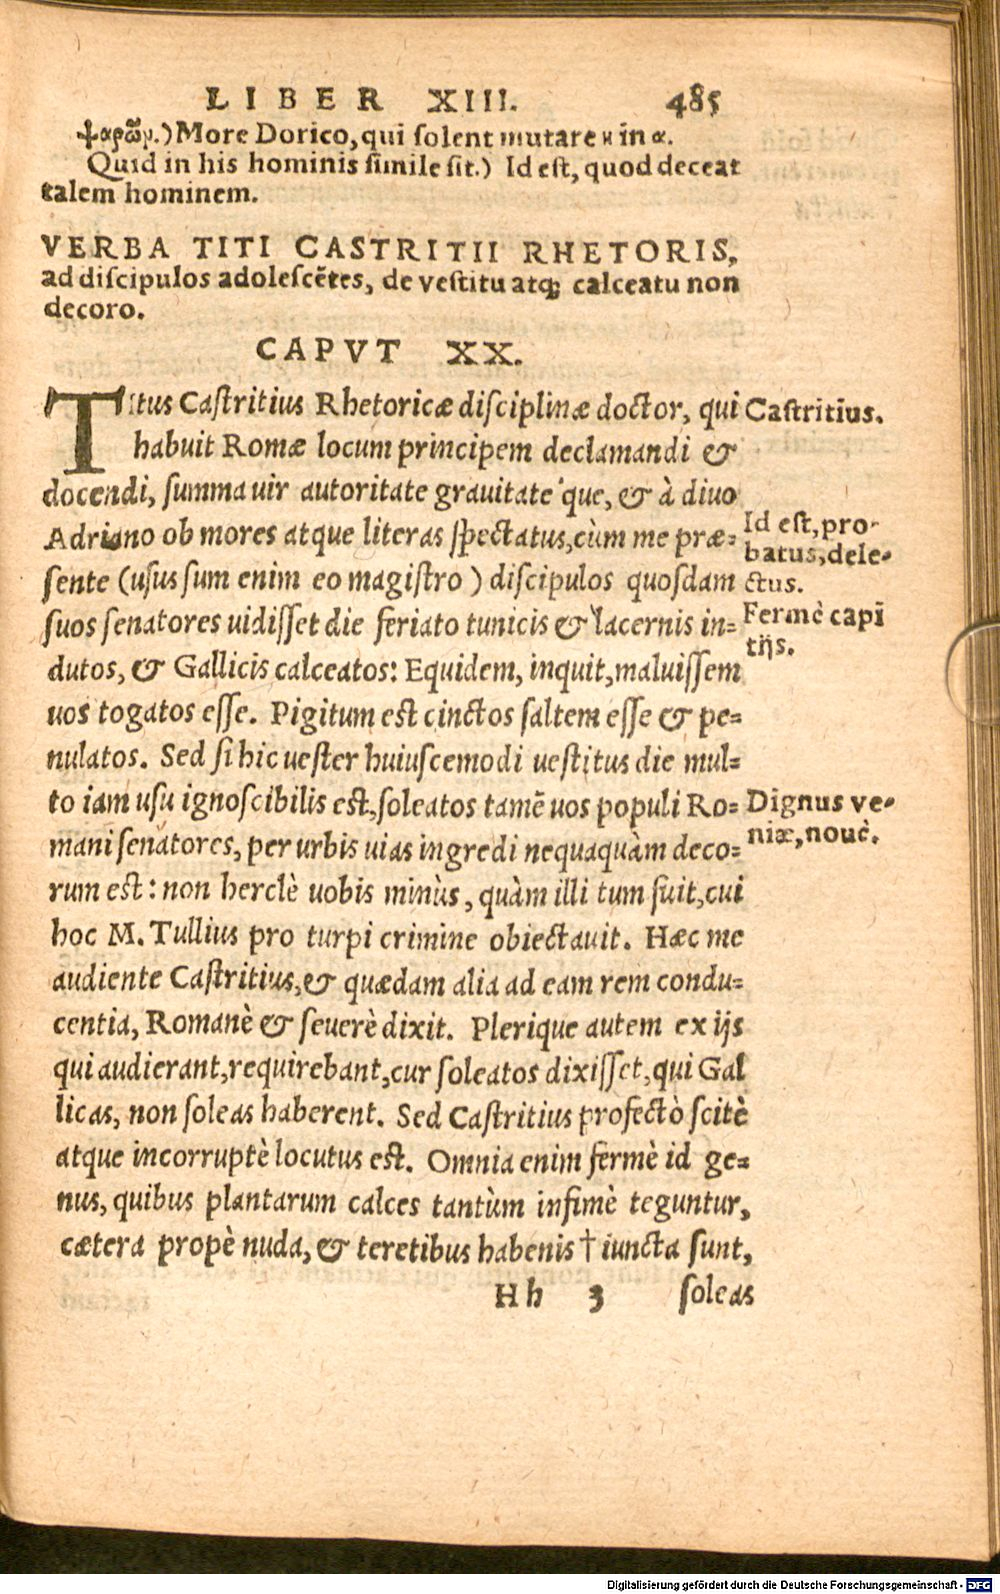 LIBER XIII. 485
ψαρῶν.) More Dorico, qui solent mutare η in α.
Quid in his hominis simile sit.) Id est, quod deceat
talem hominem.
VERBA TITI CASTRITII RHETORIS,
ad discipulos adolescẽtes, de vestitu atq; calceatu non
decoro.
CAPVT XX.
Titus Castritius Rhetoricæ disciplinæ doctor, qui
Castritius.
habuit Romæ locum principem declamandi &
docendi, summa uir autoritate grauitate que, & à diuo
Adriano ob mores atque literas spectatus, cùm me præ-
Id est, pro-
batus, dele-
ctus.
sente (usus sum enim eo magistro) discipulos quosdam
suos senatores uidisset die feriato tunicis & lacernis in-
Fermè capi
tijs.
dutos, & Gallicis calceatos: Equidem, inquit, maluissem
uos togatos esse. Pigitum est cinctos saltem esse & pe-
nulatos. Sed si hic uester huiuscemodi uestitus die mul-
to iam usu ignoscibilis est, soleatos tamẽ uos populi Ro-
Dignus ve-
niæ, nouè.
mani senatores, per urbis uias ingredi nequaquàm deco-
rum est: non herclè uobis minùs, quàm illi tum fuit, cui
hoc M. Tullius pro turpi crimine obiectauit. Hæc me
audiente Castritius, & quædam alia ad eam rem condu-
centia, Romanè & seuerè dixit. Plerique autem ex ijs
qui audierant, requirebant, cur soleatos dixisset, qui Gal
licas, non soleas haberent. Sed Castritius profectò scitè
atque incorruptè locutus est. Omnia enim fermè id ge-
nus, quibus plantarum calces tantùm infimè teguntur,
cætera propè nuda, & teretibus habenis † iuncta sunt,
Hh 3 soleas
Digitalisierung gefördert durch die Deutsche Forschungsgemeinschaft - DFG